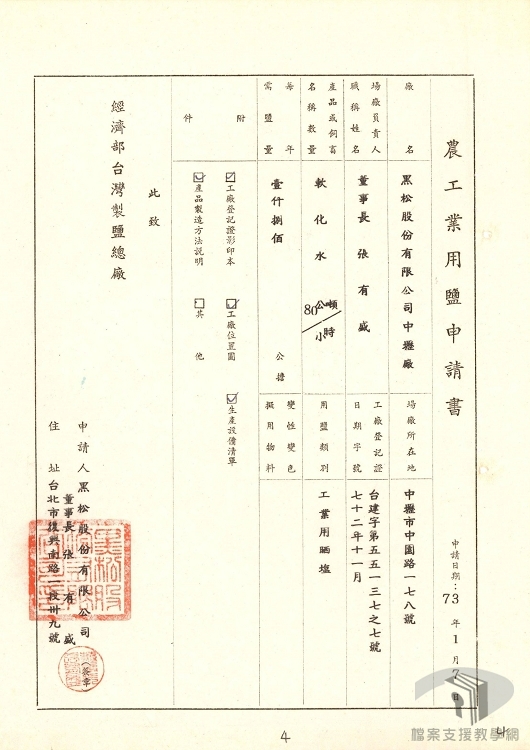 農工業用鹽申請書
申請日期：73年1月7日
廠名
黑松股份有限公司中壢廠
場廠所在地
中壢市中園路一七八號
場廠負責人職稱姓名
董事長 張有盛
工廠登記證日期字號
台建字第五五一三七之七號
七十二年十一月
產品或飼畜名稱數量
軟化水 80公噸/小時
用鹽類別
工業用晒塩
每年需鹽量
壹仟捌佰 公擔
變性變色擬用物料
附件
工廠登記證影印本
工廠位置圖
生產設備清單
產品製造方法說明
其他
此致
經濟部台灣製鹽總廠
申請人 黑松股份有限公司
董事長 張有盛 (簽章)
住址 台北市復興南路一段卅九號
4
4
檔案支援教學網